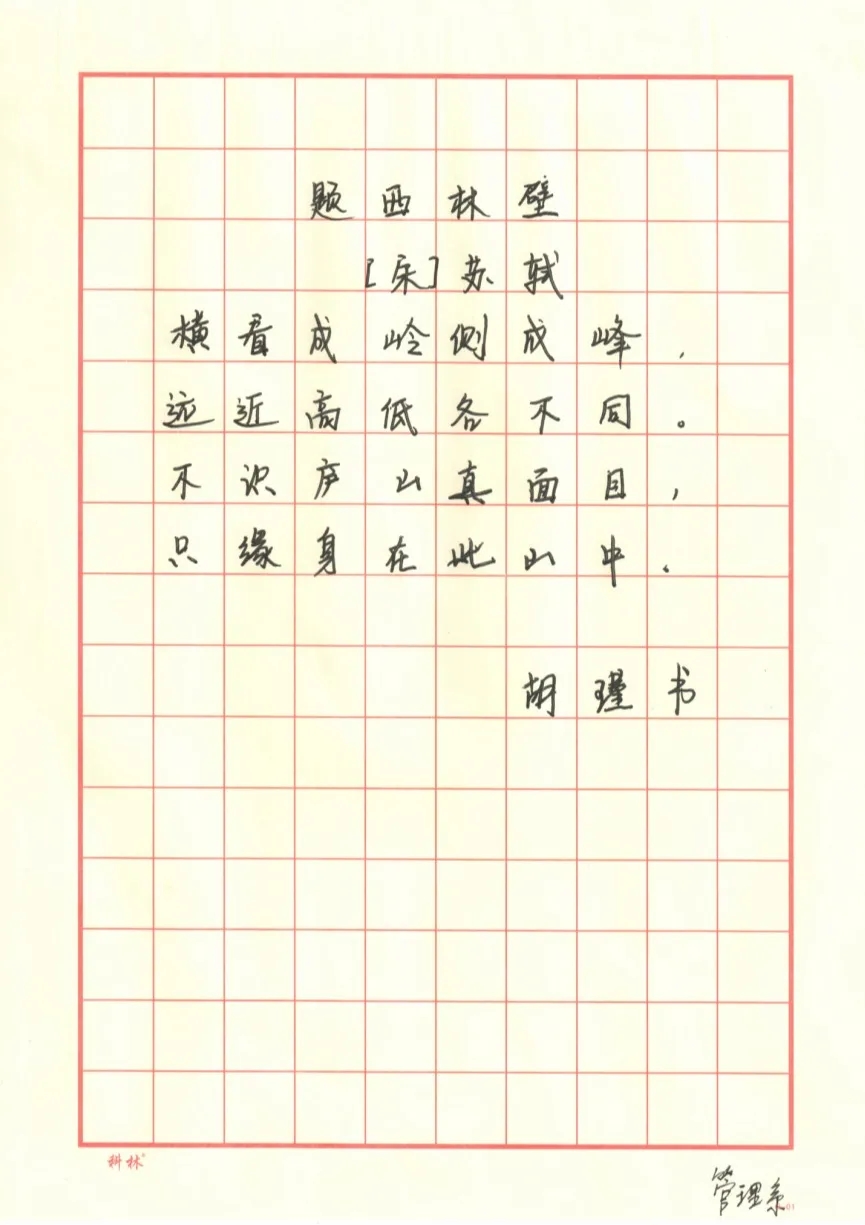 题西林壁
[宋]苏轼
横看成岭侧成峰，
远近高低各不同。
不识庐山真面目，
只缘身在此山中.
胡瑾书
科林
管理系